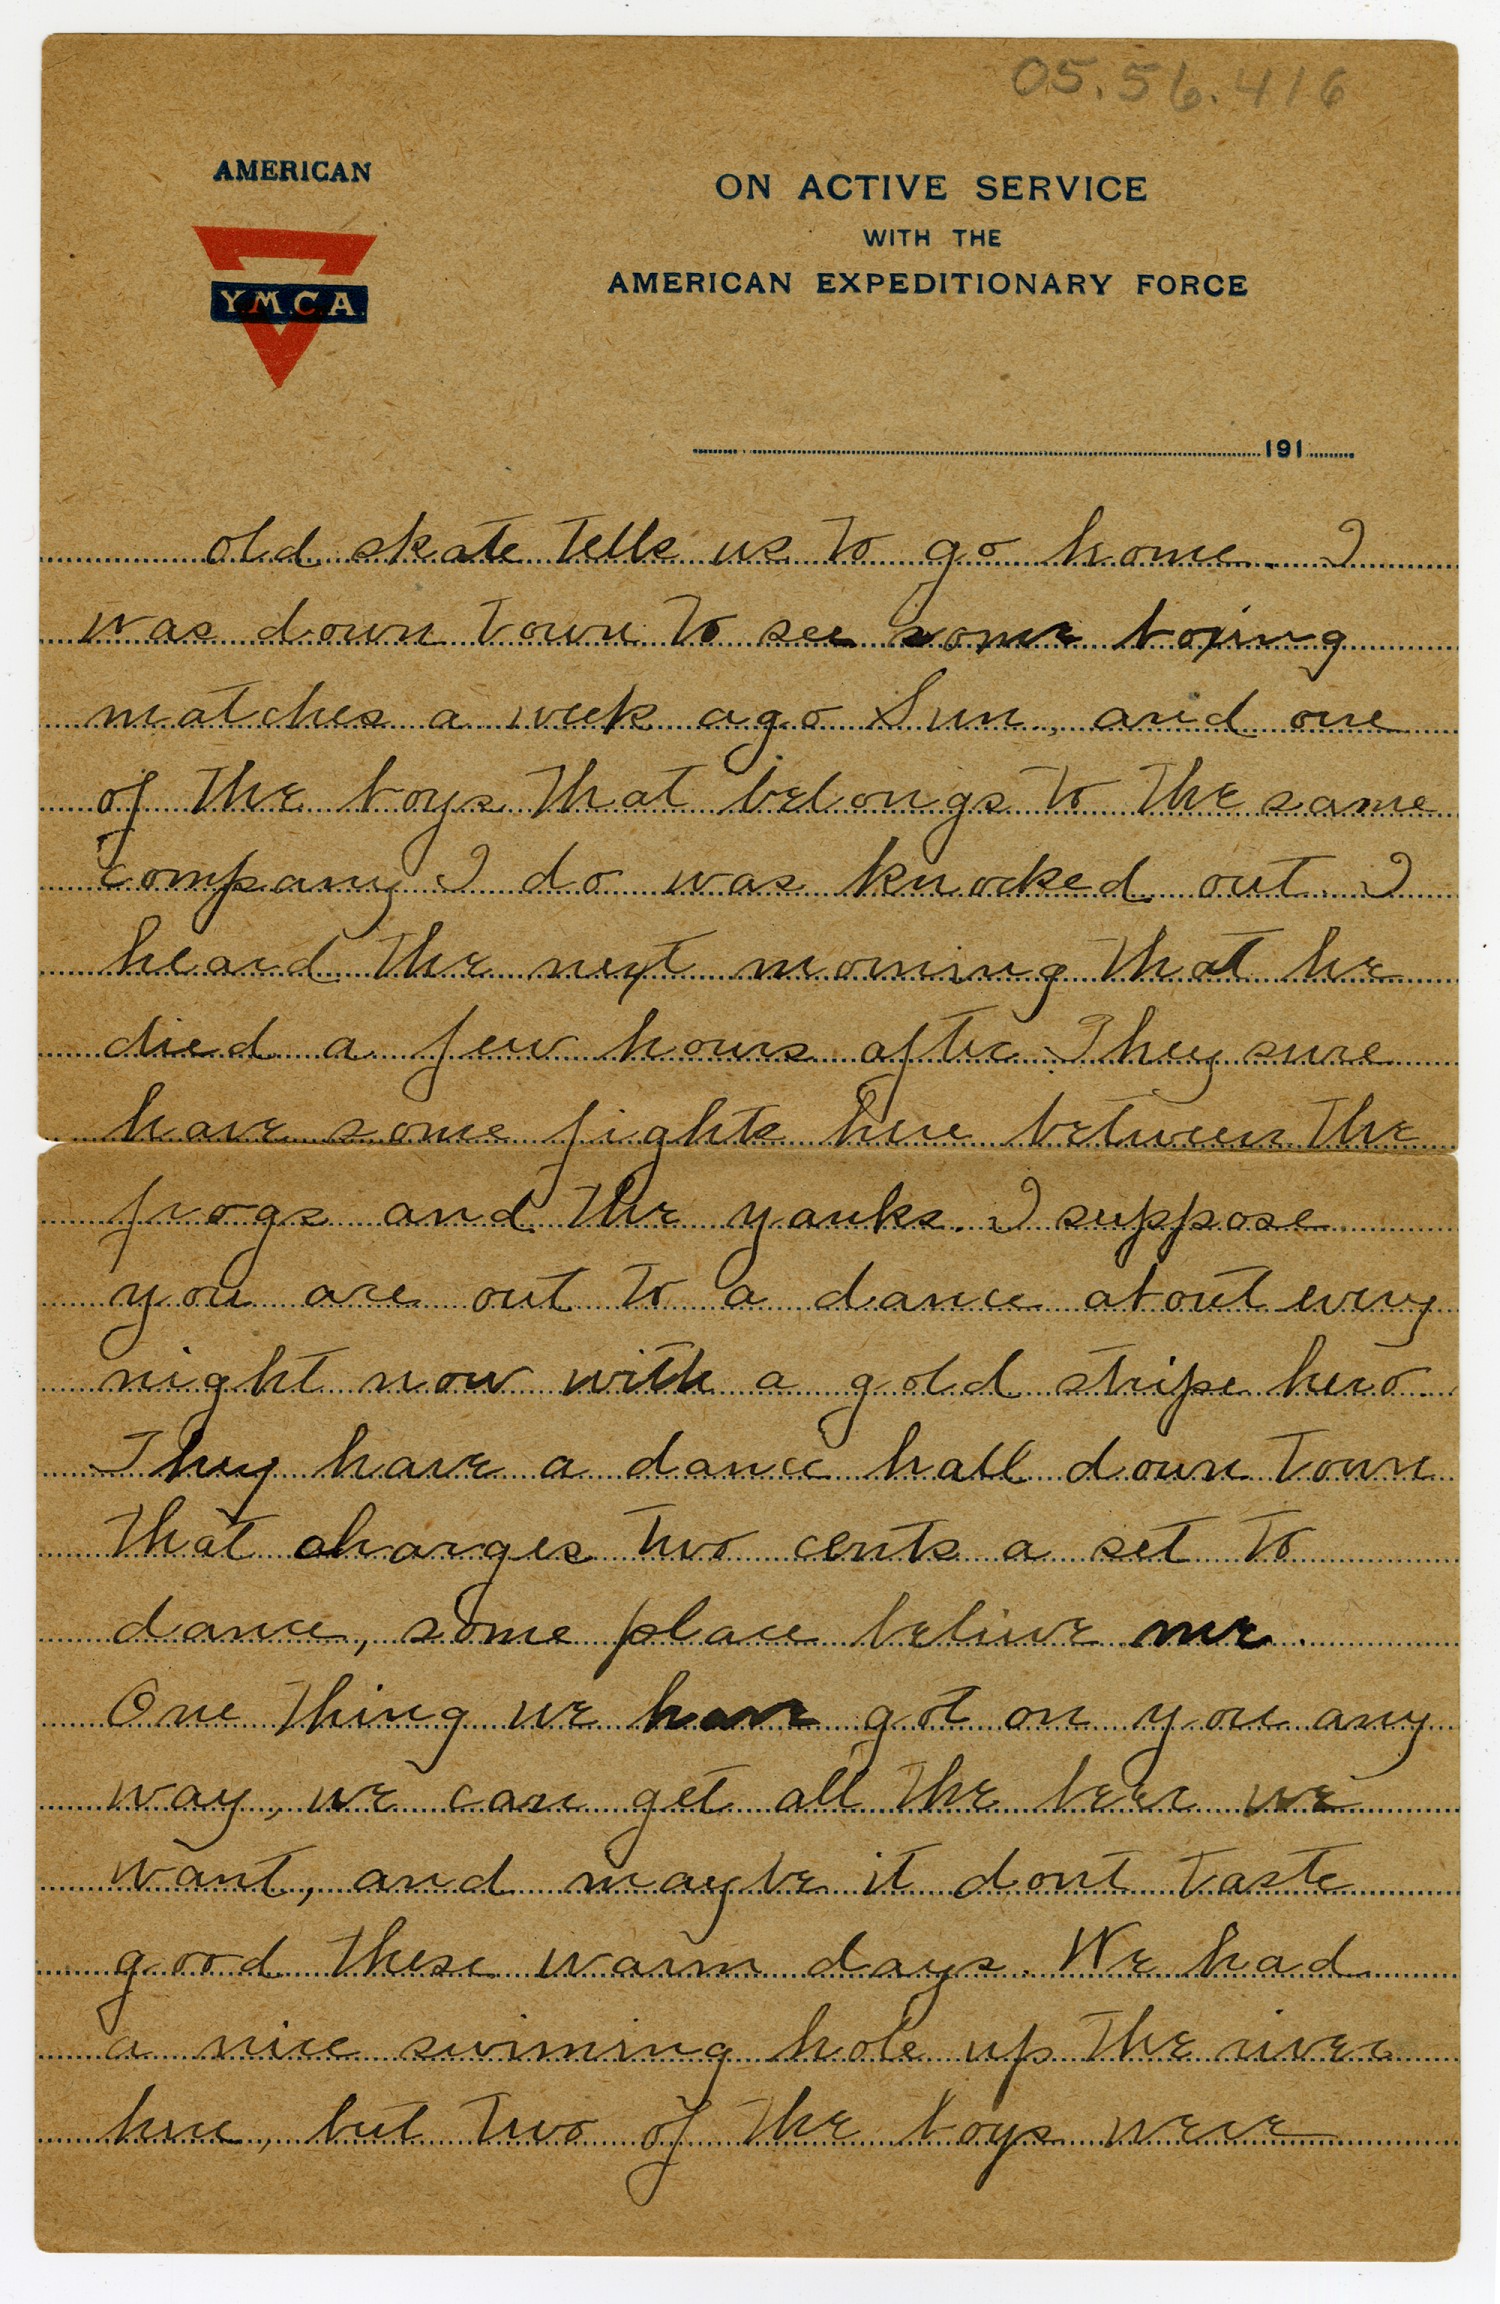 05.56.416
AMERICAN
Y.M.C.A.
ON ACTIVE SERVICE
WITH THE
AMERICAN EXPEDITIONARY FORCE
191
old skate tells us to go home. I
was down town to see some boxing
matches a week ago Sun, and one
of the boys that belongs to the same
company I do was knocked out. I
heard the next morning that he
died a few hours after. They sure
have some fights here between the
frogs and the yanks. I suppose
you are out to a dance about every
night now with a gold stripe hero.
They have a dance hall down town
that charges two cents a set to
dance, some place belive me.
One thing we have got on you any
way, we can get all the beer we
want, and maybe it dont taste
good these warm days. We had
a nice swiming hole up the river
here, but two of the boys were